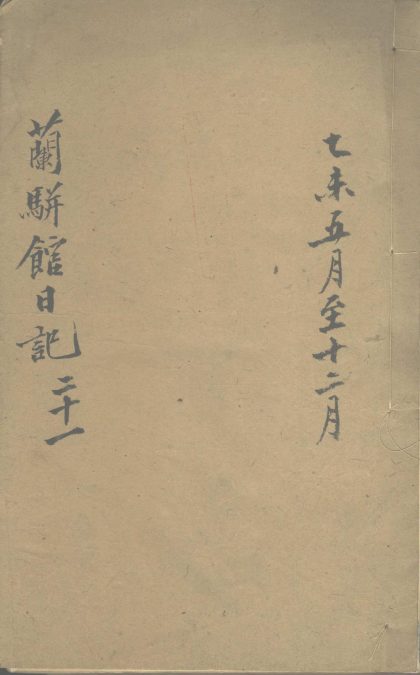 乙未五月至十二月
蘭駢館日記
二十一